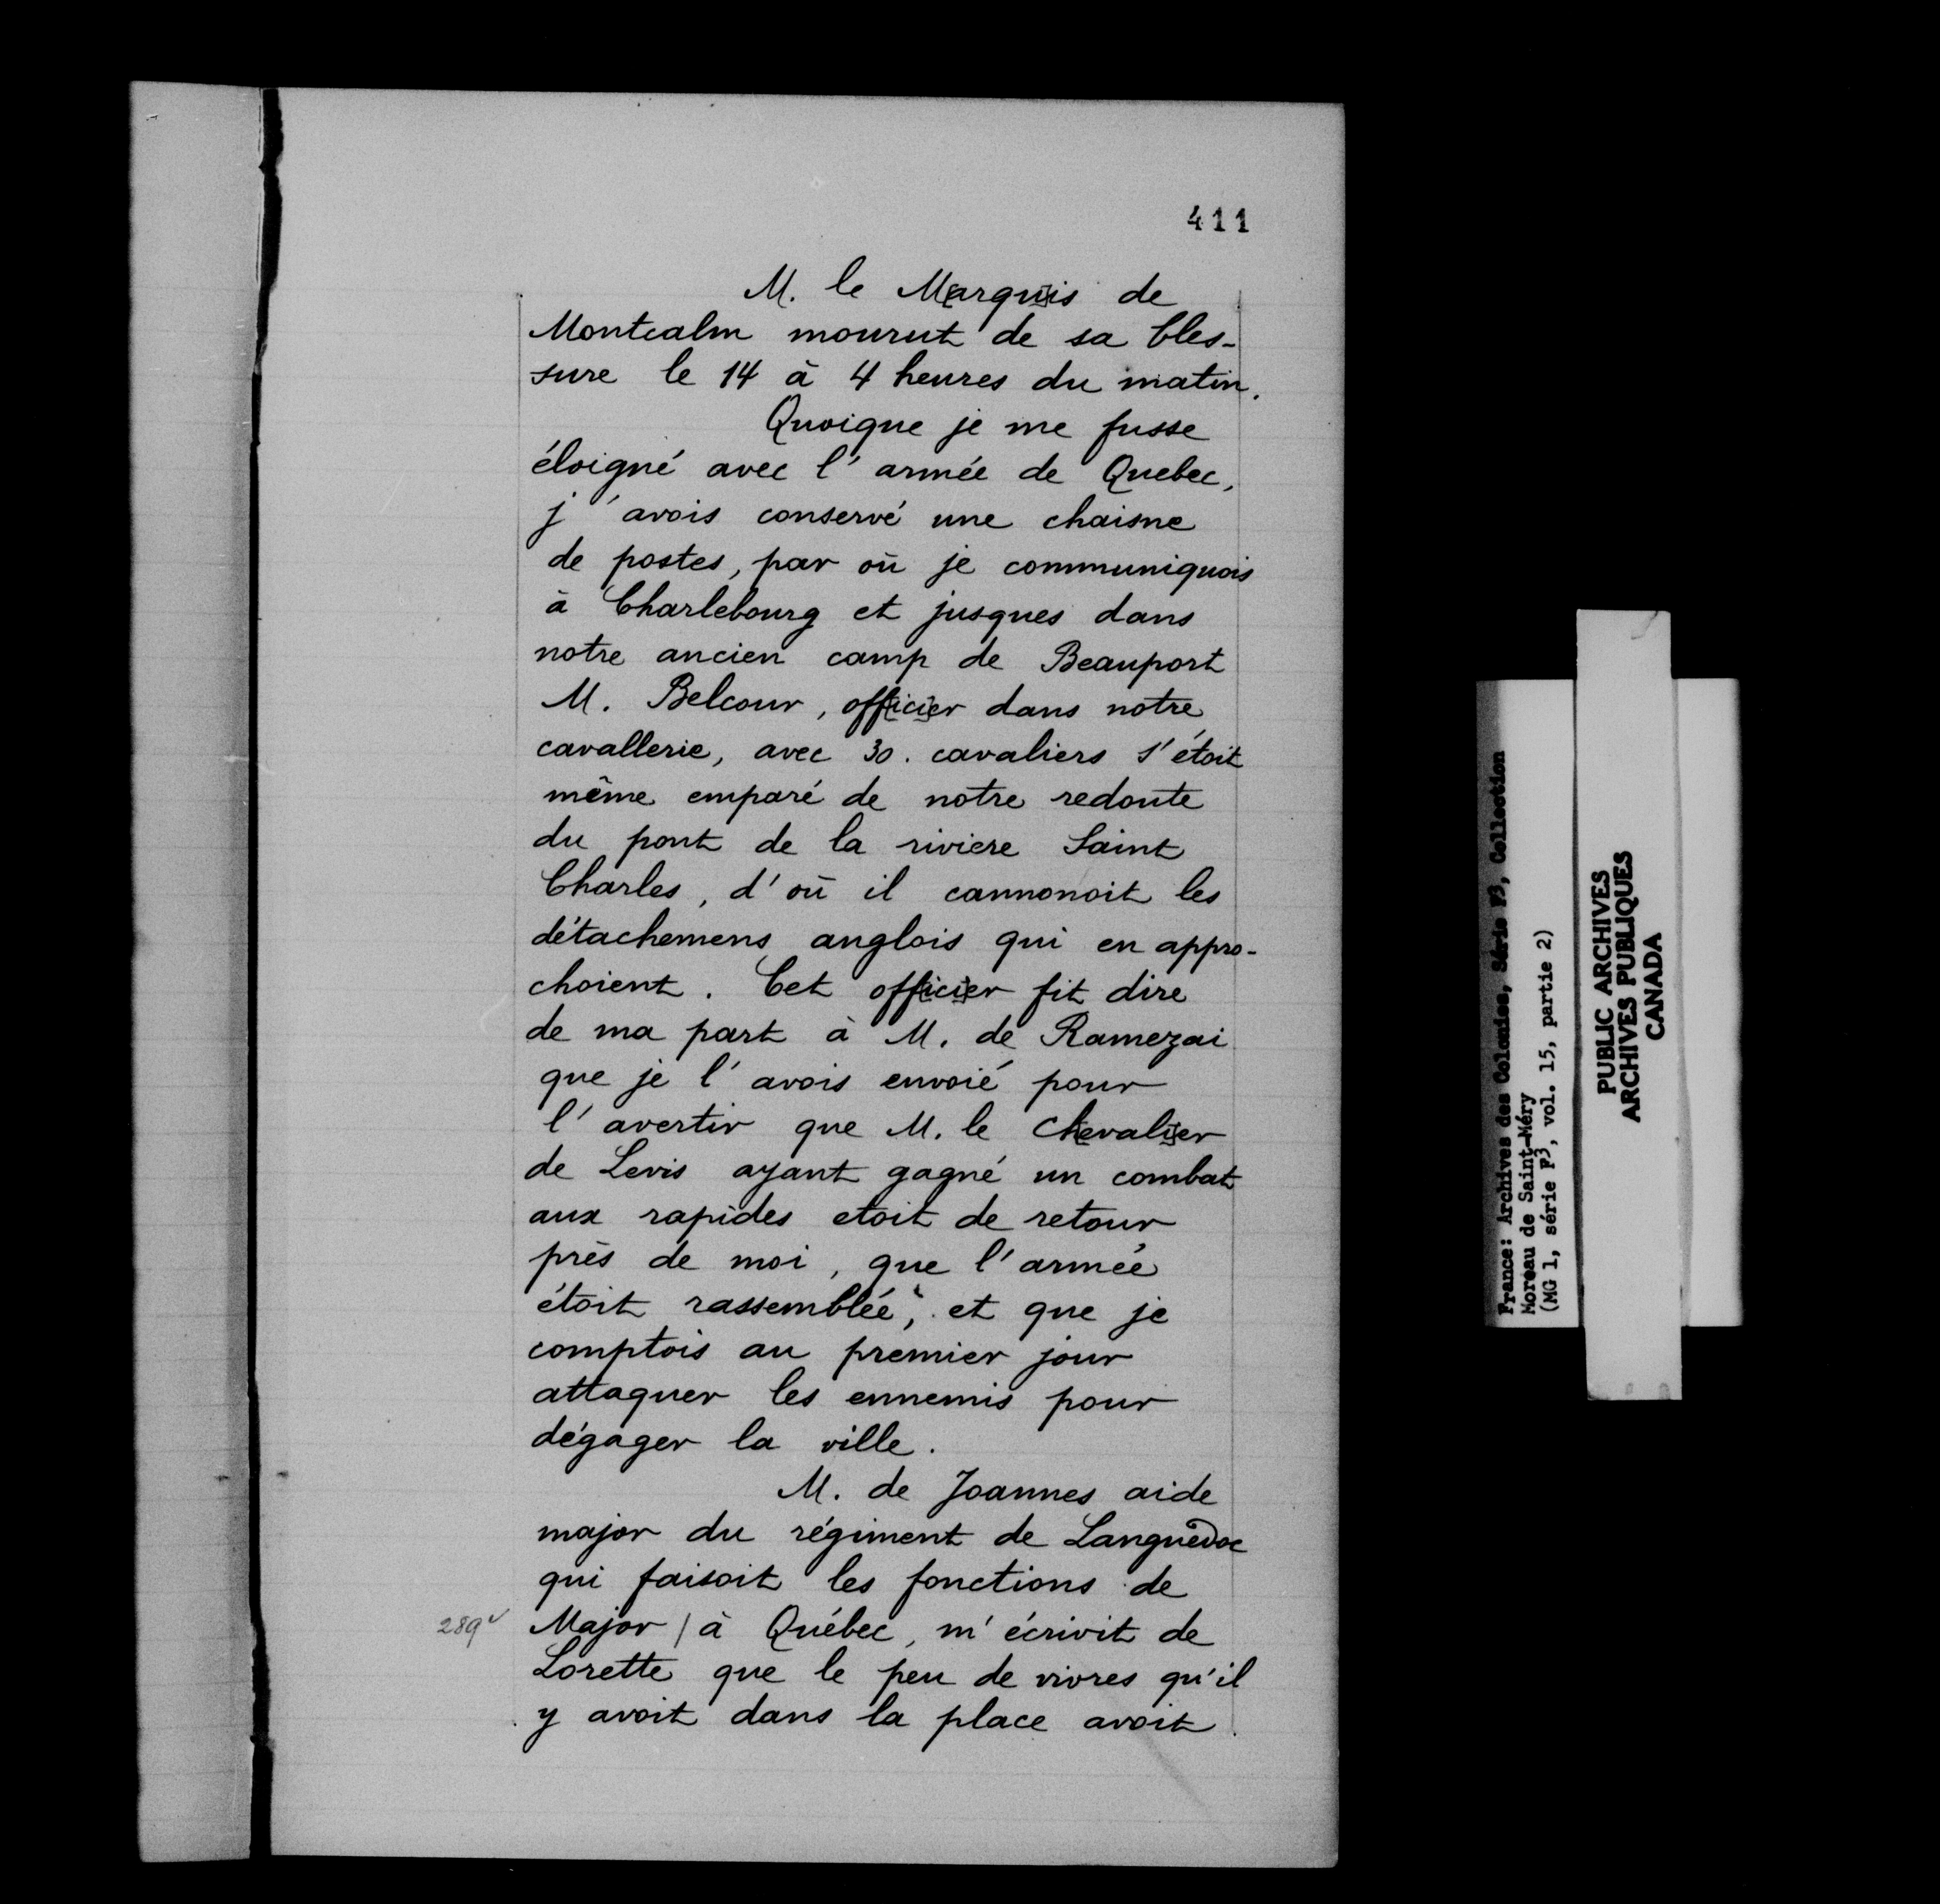 411
M. le M[arqu]is de
Montcalm mourut de sa bles-
sure le 14 à 4 heures du matin.
Quoique je me fusse
éloigné avec l'armée de Quebec,
j'avois conservé une chaisne
de postes, par où je communiquois
à Charlebourg et jusques dans
notre ancien camp de Beauport
M. Belcour, off[ici]er dans notre
cavallerie, avec 30. cavaliers s'étoit
même emparé de notre redoute
du pont de la riviere Saint
Charles, d'où il cannonoit les
détachemens anglois qui en appro-
choient. Cet off[ici]er fit dire
de ma part à M. de Ramezai
que je l'avois envoié pour
l'avertir que M. le Ch[evali]er
de Levis ayant gagné un combat
aux rapides etoit de retour
près de moi, que l'armée
étoit rassemblée, et que je
comptois au premier jour
attaquer les ennemis pour
dégager la ville.
M. de Joannes aide
major du régiment de Languedoc
qui faisoit les fonctions de
289v Major / à Québec, m'écrivit de
Lorette que le peu de vivres qu'il
y avoit dans la place avoit
France: Archives des Colonies, Série F3, Collection
Moreau de Saint-Méry
(MG 1, série F3, vol. 15, partie 2)
PUBLIC ARCHIVES
ARCHIVES PUBLIQUES
CANADA